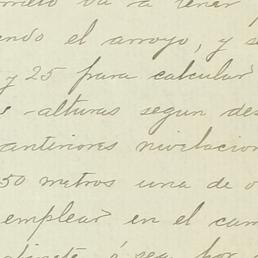 va á tener
endo el arroyo, y s
y 25 para calcular
s alturas segun des
anteriores nivelacion
50 metros una de o
emplear en el cam
ó sea por